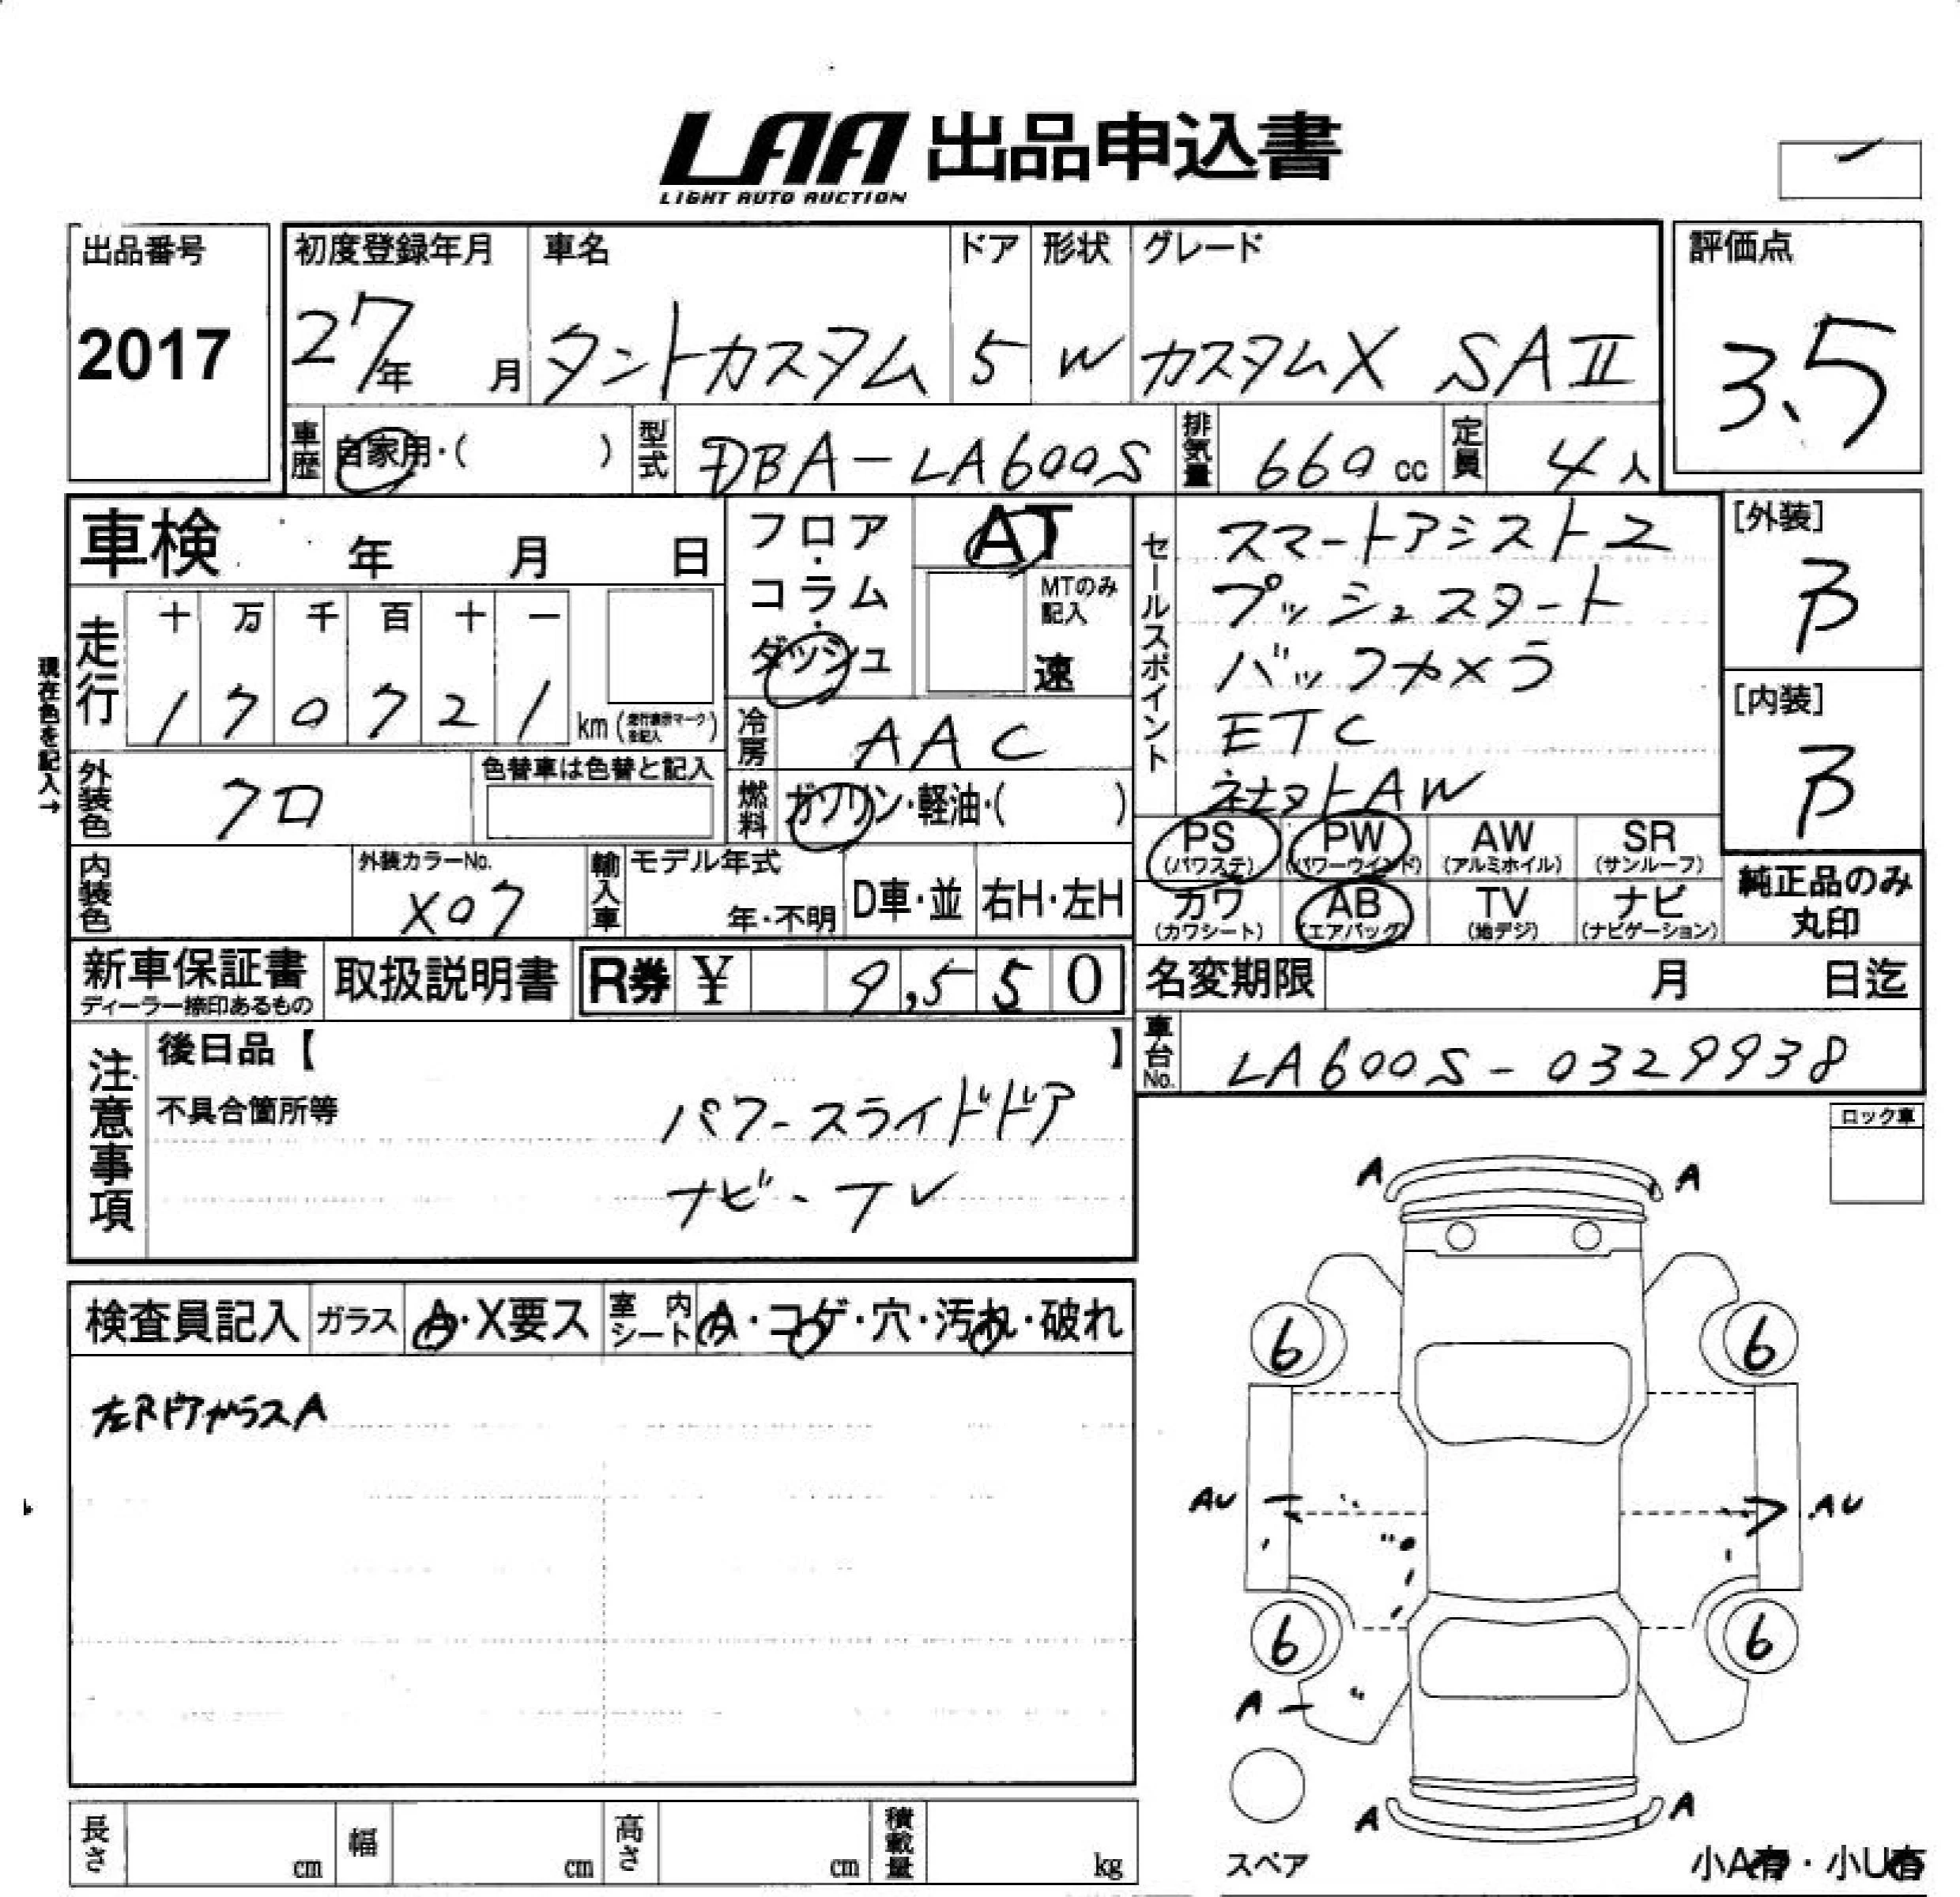 LAA 出品申込書
LIGHT AUTO AUCTION
出品番号
2017
初度登録年月
27年 月
車名
タントカスタム
ドア
5
形状
W
グレード
カスタムX SAⅡ
評価点
3.5
車歴 自家用・( )
型式 DBA-LA600S
排気量 660cc
定員 4人
車検 年 月 日
走行
十 万 千 百 十 一
1 7 0 7 2 1 km
現在色を記入→
フロア・コラム・ダッシュ
AT
MTのみ記入
速
冷房 AAC
燃料 ガソリン・軽油・( )
セールスポイント
スマートアシスト2
プッシュスタート
バックカメラ
ETC
社外AW
[外装]
B
[内装]
B
外装色 クロ
色替車は色替と記入
内装色
外装カラーNo.
X07
輸入車 モデル年式
年・不明
D車・並
右H・左H
PS (パワステ)
PW (パワーウインド)
AW (アルミホイル)
SR (サンルーフ)
カワ (カワシート)
AB (エアバッグ)
TV (地デジ)
ナビ (ナビゲーション)
純正品のみ
丸印
新車保証書
ディーラー捺印あるもの
取扱説明書
R券 ¥ 9,550
名変期限 月 日迄
車台No. LA600S-0329938
注意事項
後日品【 】
不具合箇所等
パワースライドドア
ナビ・TV
ロック車
検査員記入
ガラス A・X要ス
室内シート A・コゲ・穴・汚れ・破れ
左RドアガラスA
A A
6 6
AU AU
6 6
A
A A
スペア
小A有・小U有
長さ cm
幅 cm
高さ cm
積載量 kg